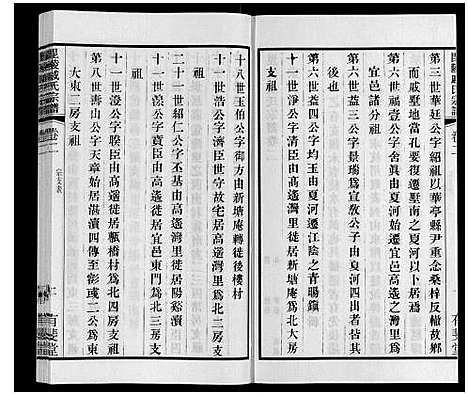 毘陵戚氏宗譜 卷二
第三世華廷公字紹祖以華亭縣尹重念桑梓反轍故鄉
而戚墅地當孔要不便復遷墅南之夏河以卜居焉
第六世福壹公字舍眞由夏河始遷宜邑高遙之灣里爲
宜邑諸分祖
第六世益三公字景瑜爲宣教公字由夏河四出者皆其
後也
十一世益四公字均玉由夏河遷江陰之青暘鎭
十一世淨公字清臣由高遙灣里徙居新塘庵爲北大房
支祖
十八世玉伯公字御方由新塘庵轉徙後樓村
十一世浩公字濟臣世守故宅居高遙灣里爲北二房支
祖
十一世紹仁公字丕基由高遙灣里徙居陽谿瀆
十一世濚公字賓臣由高遙徙居宜邑東門爲北三房支
祖
十一世澄公字朡臣由高遙徙居瓢橋村爲北四房支祖
第八世壽山公字天章始居湛瀆四傳至彰彧二公爲東
大東二房支祖
宗支表
有斐堂